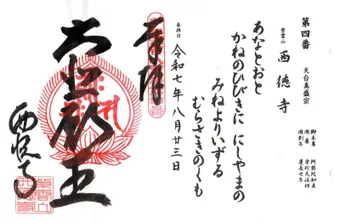 第四番 天台真盛宗
紫雲山 西徳寺
御本尊 阿弥陀如来
開創年 慶長七年
あなとおと
かねのひびきに にしやまの
みねよりいずる
むらさきのくも
参拝日 令和七年八月廿三日
奉拝
西徳寺